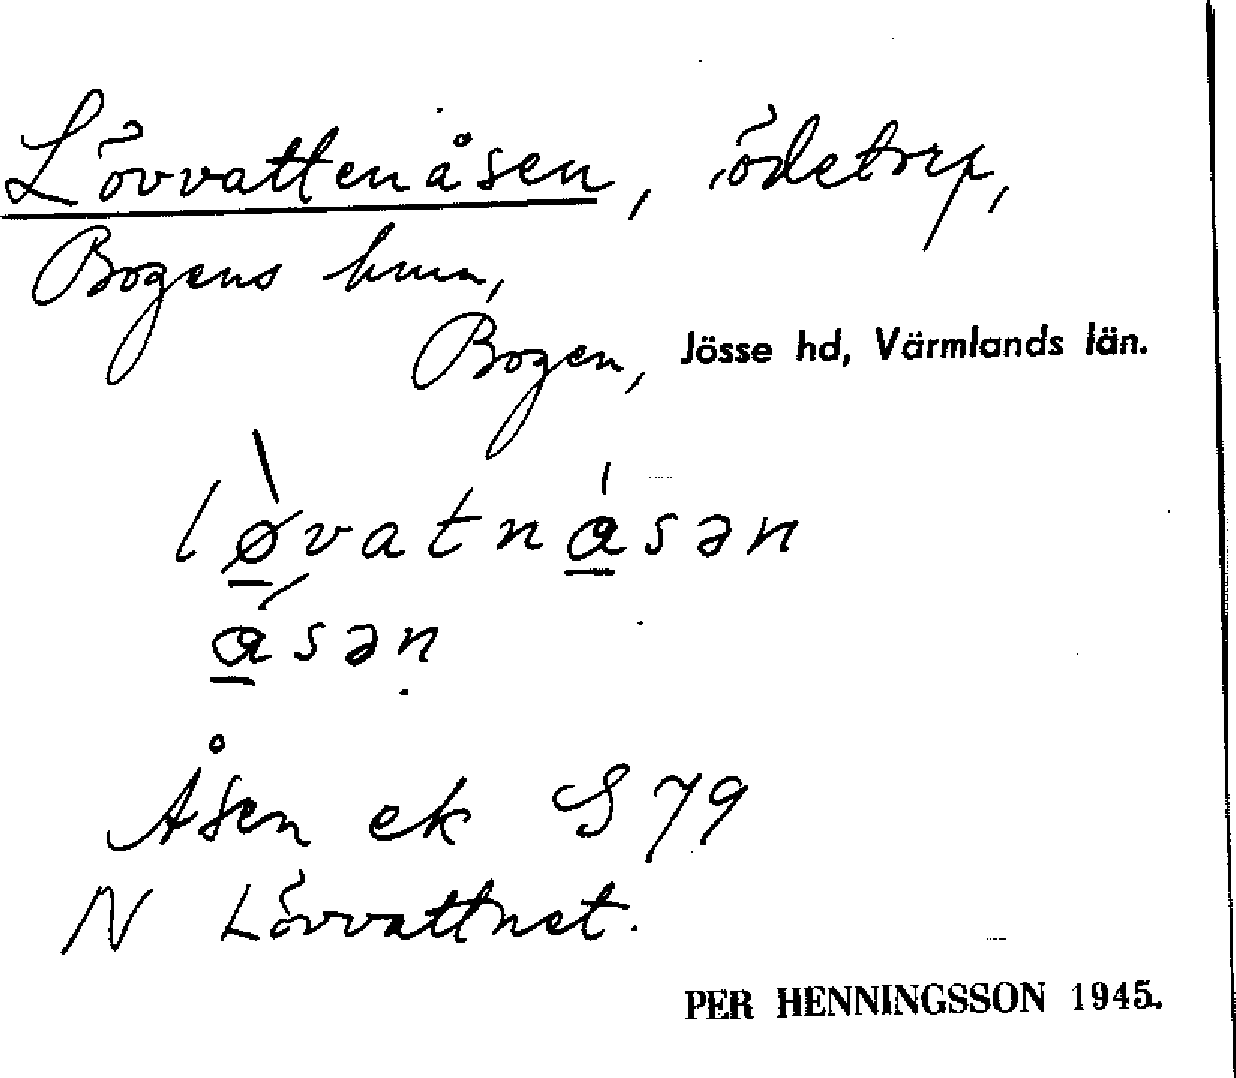 Lövvattenåsen, ödetrp,
Bogens kmn,
Bogen, Jösse hd, Värmlands län.
lø̱̀vatnɑ̱́sən
ɑ̱́səṇ
Åsen ek S 79
N Lövvattnet.
PER HENNINGSSON 1945.